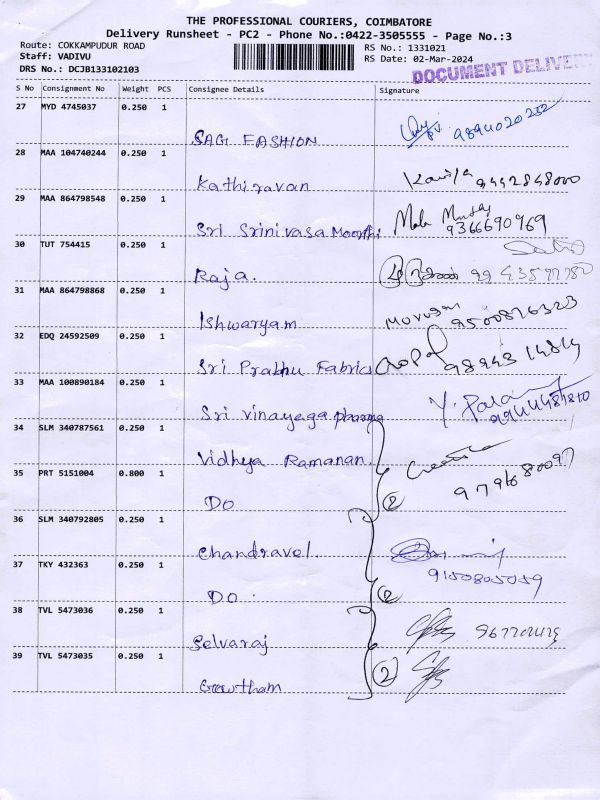 THE PROFESSIONAL COURIERS, COIMBATORE
Delivery Runsheet - PC2 - Phone No.:0422-3505555 - Page No.:3
Route: COKKAMPUDUR ROAD
Staff: VADIVU
DRS No.: DCJB133102103
RS No.: 1331021
RS Date: 02-Mar-2024
DOCUMENT DELIVERY
S No Consignment No Weight PCS Consignee Details Signature
27 MYD 4745037 0.250 1
SAGI FASHION 9894020252
28 MAA 104740244 0.250 1
Kathiravan 9442848000
29 MAA 864798548 0.250 1
Sri Srinivasa Moorthi 9366690969
30 TUT 754415 0.250 1
Raja.
31 MAA 864798868 0.250 1
Ishwaryam Murugan 9500876323
32 EDQ 24592509 0.250 1
Sri Prabhu Fabrics
33 MAA 100890184 0.250 1
Sri vinayaga pharma
34 SLM 340787561 0.250 1
Vidhya Ramanan
35 PRT 5151004 0.800 1
Do 2
36 SLM 340792805 0.250 1
Chandravel 9150805059
37 TKY 432363 0.250 1
Do. 2
38 TVL 5473036 0.250 1
Selvaraj
39 TVL 5473035 0.250 1
Gowtham 2